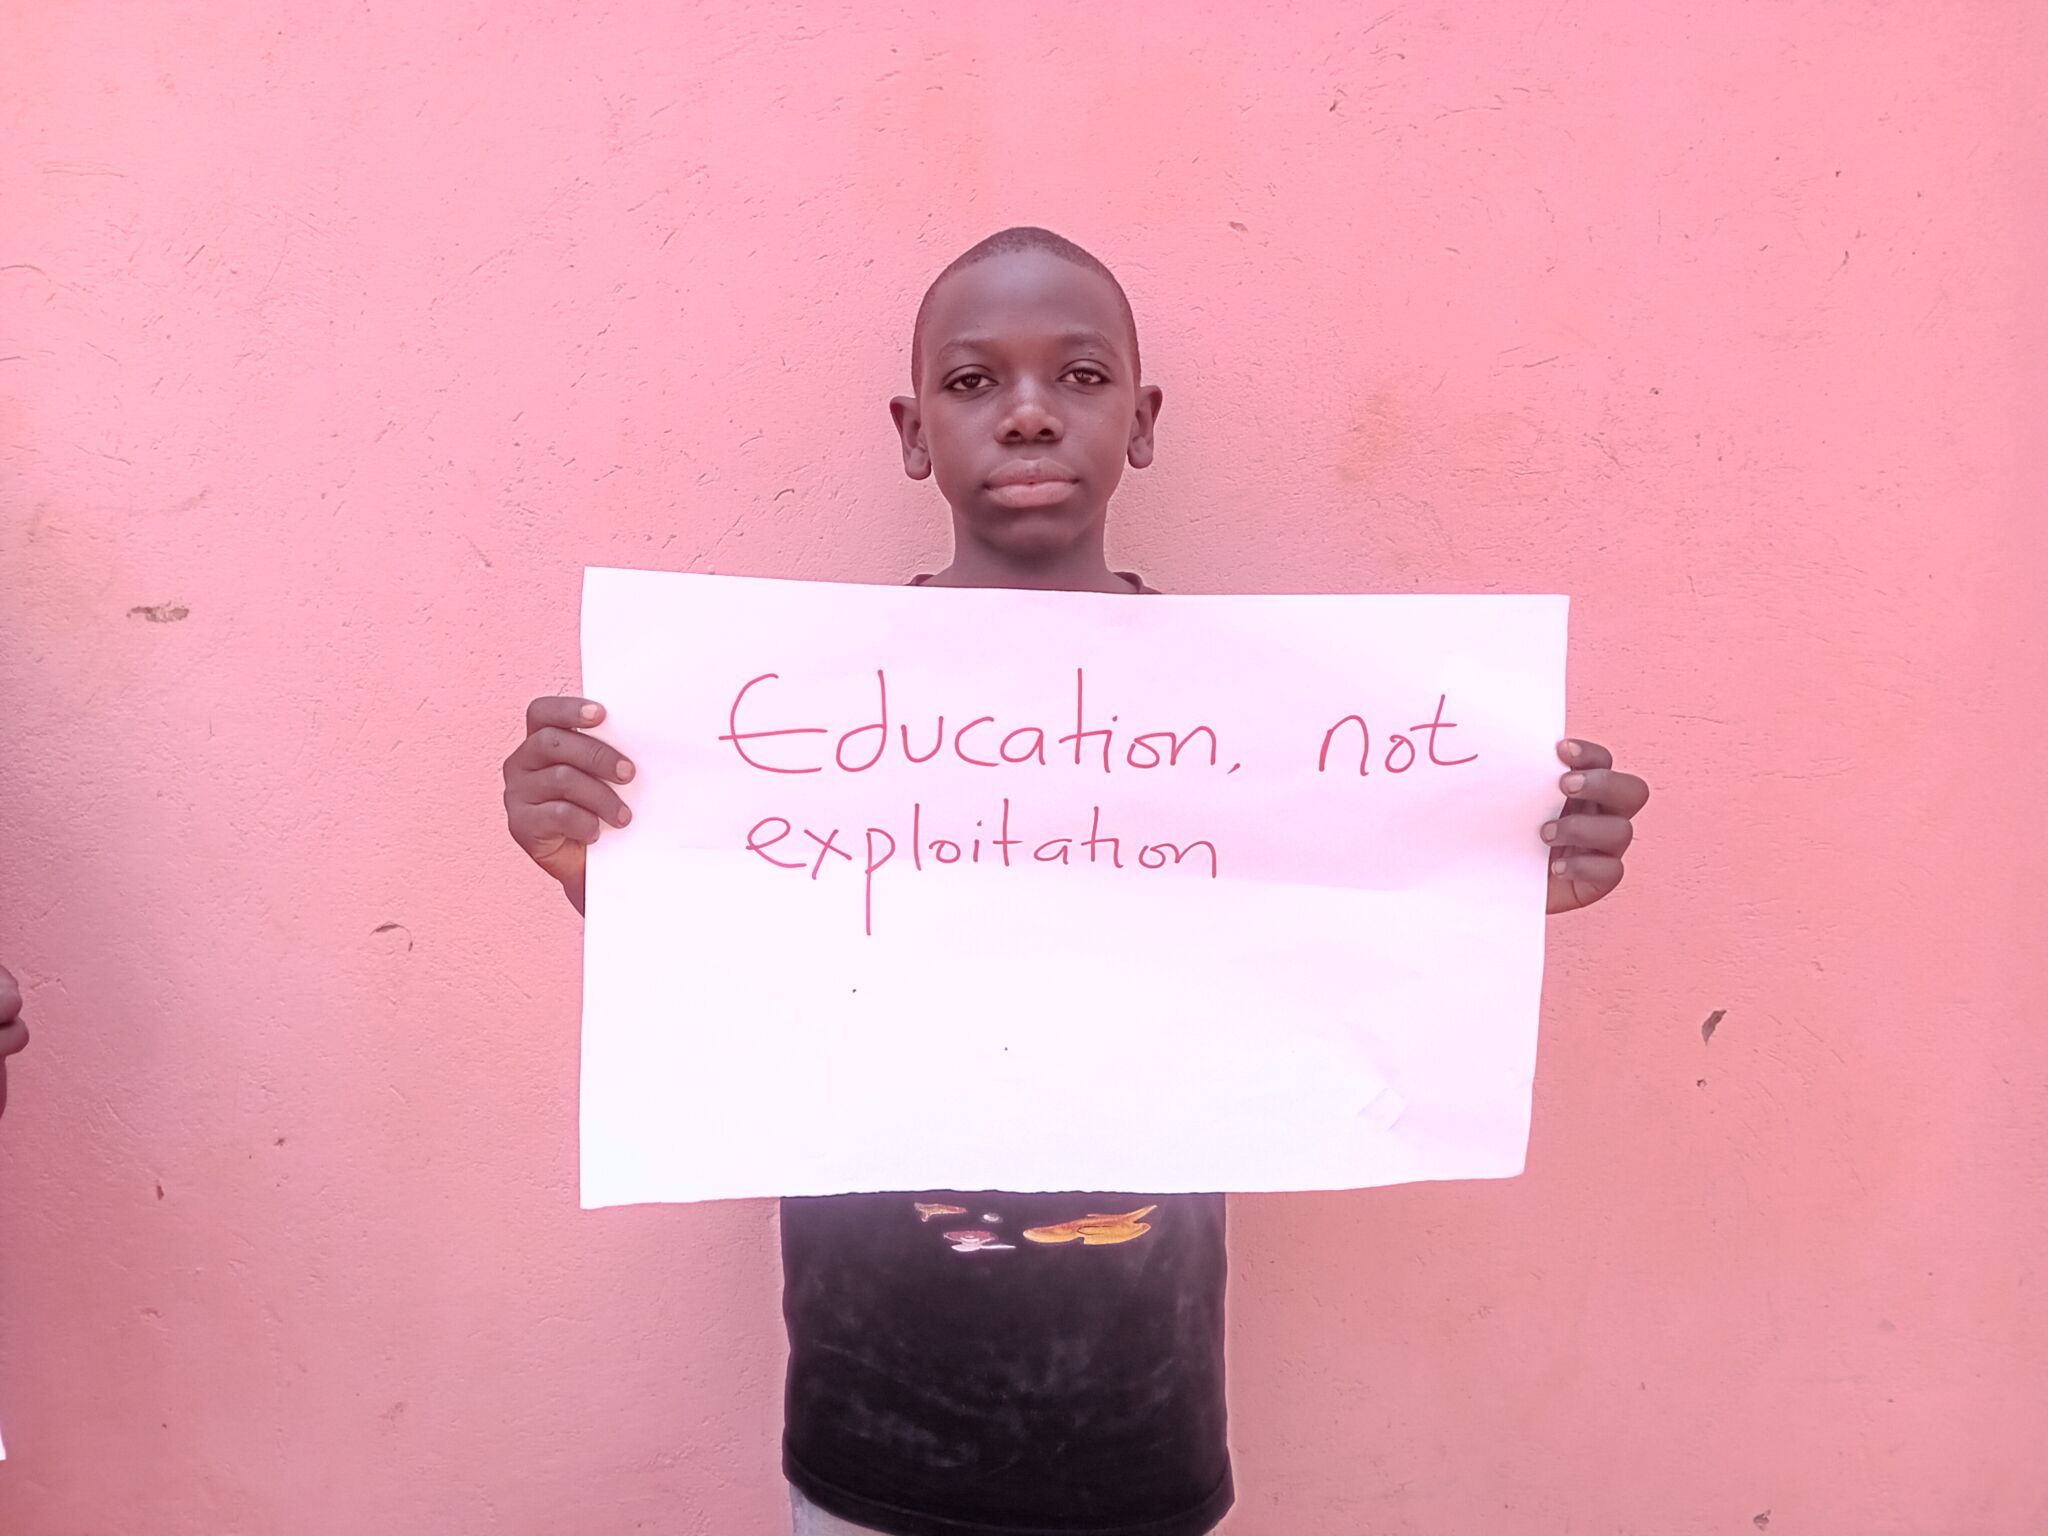 Education, not
exploitation